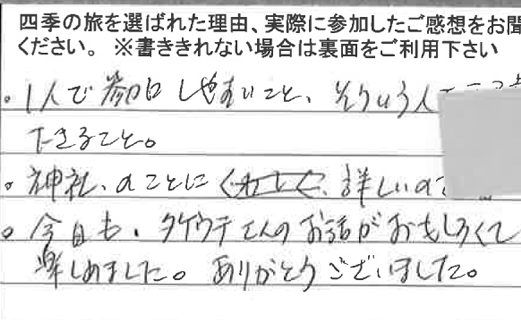 四季の旅を選ばれた理由、実際に参加したご感想をお聞
ください。 ※書ききれない場合は裏面をご利用下さい
。1人で参加しやすいこと、そういう人
できること。
。神社、のことにくわしく、詳しいの
。今日も、タケウチさんのお話がおもしろくて
楽しめました。ありがとうございました。